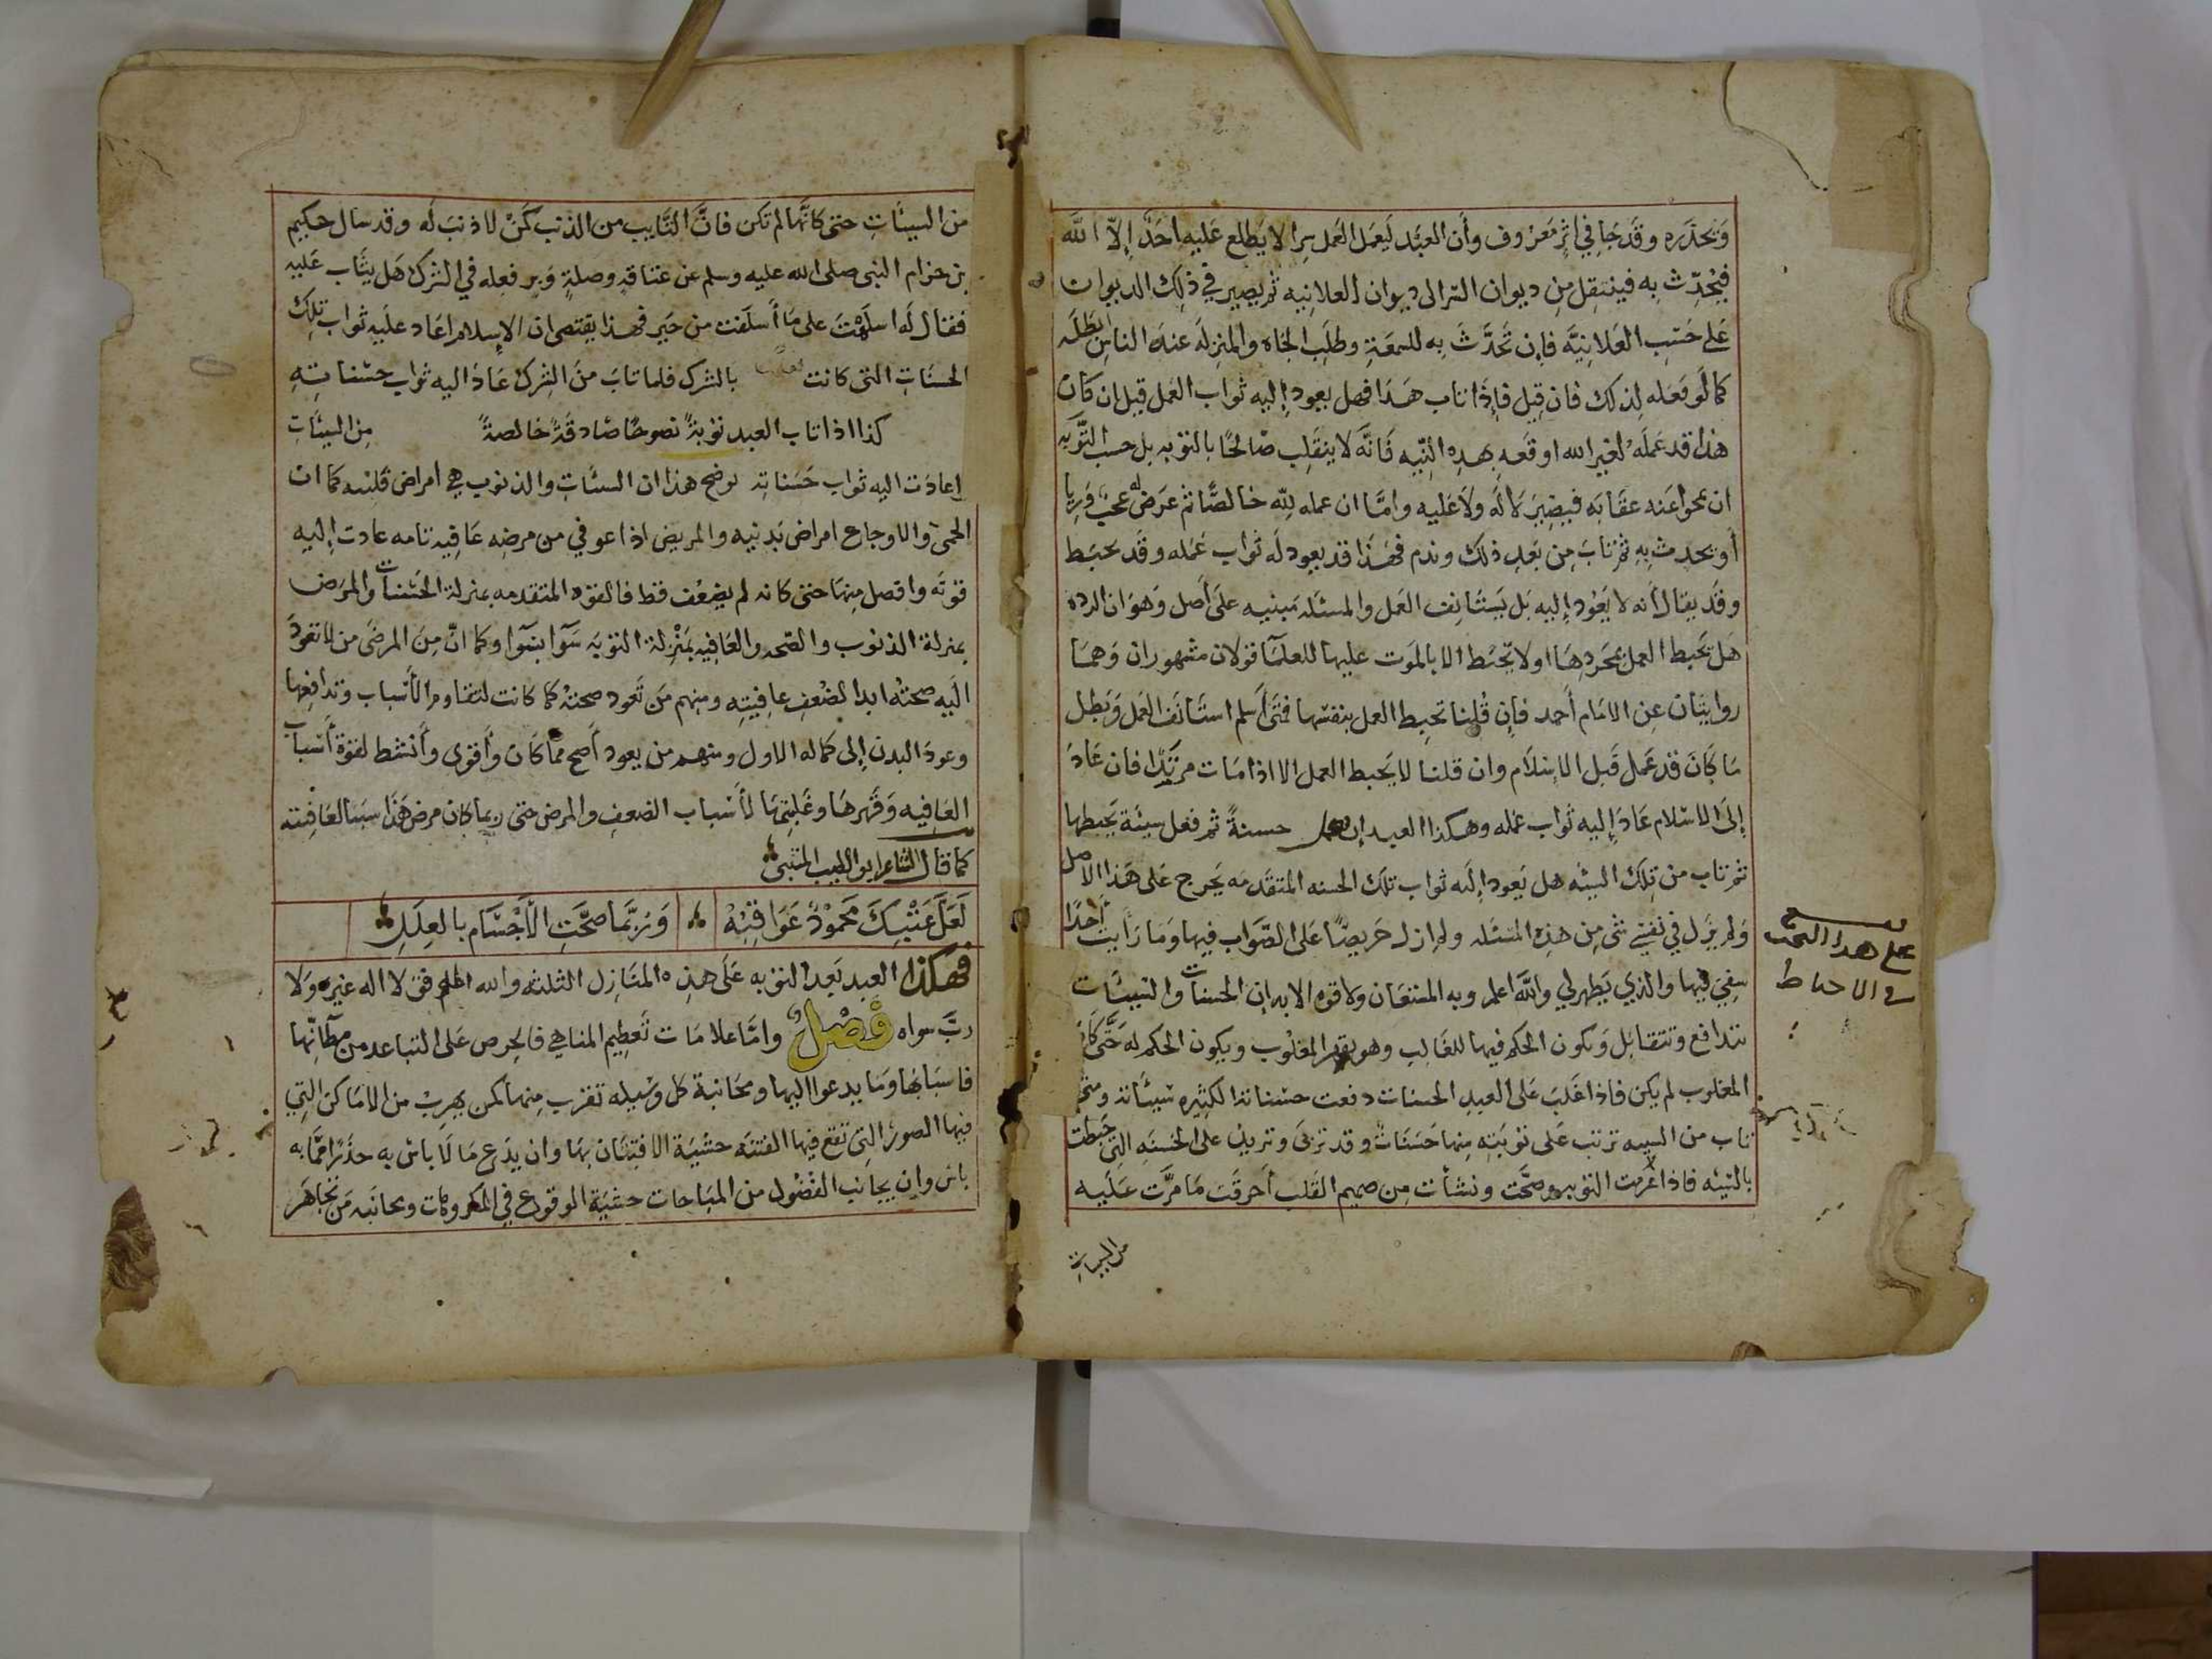 وَيحذَره وقَد جَا في اثرٍ مَعرُوف وأن العَبْد لَيعمَل العَمل سِرا لا يَطلع عَليهِ احَدٌ إلاّ اللَّه
فيُحدِّث به فينتقِل مِن ديوان السّر الى ديوان العلانِيه ثم يصِير في ذلِك الديوان
عَلى حَسَبِ العَلانِيَّه فإن تَحَدَّثَ بِه للسمعَةِ وطلَبِ الجَاه والمنزلَه عندَ الناسِ ابطلَه
كما لَو فَعَله لِذلك فان قيل فإذا تاب هَذا فهل يعود إليه ثواب العَمل قيل ان كان
هذا قد عَملَه لغير الله اوقعَه بهذِه النّيه فَانَّه لا ينقَلِب صَالحًا بالتوبه بل حسب التَّوبه
ان تمحوا عَنه عقَابَه فيصِير لَا لَه ولَا عَليه وامَّا ان عمله لِلّه خالصًا ثم عَرَض له عجبٌ وَرِيا
أو تحدث بِه ثم تابَ مِن بَعد ذلك وندم فهَذا قد يعود لَه ثواب عَمله وقَد يحبَط
وقَد يقال أَنه لا يَعُود إليه بَل يَستَانِف العَمل والمسئله مَبنيه على أَصل وَهوَ ان الرده
هَل تحَبط العمل بمجَردِهَا او لا يَحبَط الا بالمَوت عليها للعلمَا قولان مشهوران وَهمَا
روايتَان عِن الامَام أحمد فإن قُلنا تحبِط العمل بنفسها فمتَى أسلم استَانَف العَمل وَبطل
مَا كَانَ قد عَمل قَبل الاسْلَام وان قلنا لا يَحبط العمل الا اذا مَات مرتَدًا فان عَادَ
إلى الاسْلام عَادَ إليه ثواب عَمله وهكذا العبد إن فعل حسنةً ثم فعل سيئَة يَحبطها
ثم تاب من تِلك السيئه هل يَعود إلَيه ثواب تلك الحسنه المتقدمَه يَخرج عَلى هَذا الاصل
وَلم يزَل في نَفسِي شَي مِن هذِهِ المسَئله ولم ازل حَرِيصًا عَلى الصَّوَاب فيها وَمَا رَأَيت أحدًا
شفِيَ فيها والذي يَظهر لي واللَّه اعلم وبه المستعَان ولا قوه الا به ان الحسَنات والسيئَات
تتدافع وتتقابَل وَيكون الحكم فيها للغَالِب وهو يقهر المغلُوب ويكون الحكم له حَتَّى كَانَ
المغلوب لم يكن فاذا غَلبَ على العبدِ الحسنات دفعت حسَناته الكثِيره سَيئَاته ومتَى
تابَ من السيئه ترتب عَلى توبَتِهِ منها حَسَنَاتٌ وقد تربىَ وتزيد على الحَسَنَه التي حَبطت
بالسّيئه فاذا عُزمت التوبه وصحّت ونشأت مِن صميم القَلب أحرقَت مَا مرَّت عَليه
من السيات
على هدا البحث
في الاحباط
من السيئَاتِ حتى كانَّها لم تكن فانَّ التَّايب من الذنب كَمَنْ لا ذنبَ لَه وقد سَال حكيم
بن حزام النبي صلى الله عليه وسلم عن عتاقةٍ وصلةٍ وَبر فعله في الشرك هَل يثَاب عَليه
فقال لَه اسلَمْتَ على مَا أسلَفت من خَير فهذا يقتضى ان الإسلام اعَاد علَيهِ ثوابَ تلكَ
الحسنَاتِ التي كانت بالشرك فلما تابَ منَ الشِرك عَادَ اليه ثواب حسَناتِهِ
كذا اذا تاب العبد توبةً نصوحًا صَادقَةً خالصةً مِن السيئَاتِ
إعادَت اليه ثواب حَسَناته يوضح هذا ان السيئَاتِ والذنوب هِي امراض قلبيه كمَا ان
الحمىّ والاوجاع امراض بَدنيه والمريض اذا عوفي من مرضِه عَافيه تامه عادت إليه
قوته وافضل مِنهَا حتى كانه لم يضعُف قط فالقوه المتقدمه بمنزلة الحسَنات والمرَض
بمنزلة الذنوب والصّحه والعَافيه بمَنْزلة التوبَه سَوآ بسَوآ وكما انّ مِنَ المرضىَ من لا تعودَ
اليَه صحته ابدا لضعفِ عافِيتِه ومنهم مَن تَعود صحتهُ كما كانت لتقاوم الأسْباب وتدافعها
وعودَ البدن إلى كماله الاول ومنهم من يعود أصح ممَّا كَانَ وَأقوى وأَنشط لقوَة أسبَاب
العَافيه وَقهرهَا وغَلبتِهَا لأسْباب الضعفِ والمرض حتى ربما كان مرض هَذا سببا لعَافيته
كما قال الشاعر ابو الطيب المتنبى
لَعَلَّ عَتْبَكَ مَحمُودٌ عَوَاقِبُهُ وَرُبَّمَا صَحَّتِ الأَجْسَام بالعِلَلِ
فهكذا العبد بَعد التوبه عَلى هذه المنَازِل الثلثه والله الموفق لا اله غيرَه وَلا
ربَّ سواه فَصْلٌ وامَّا علامَات تَعظِيم المناهي فالحِرص عَلى التباعد من مظَانِّها
فاسبَابهَا وَمَا يدعوا اليها ومجَانبة كل وسِيله تقرب مِنها كمن يهرب من الامَاكن التِي
فيها الصورُ التي تقع فيها الفتنَه خشْيَة الافتتَان بهَا وان يدَع مَا لَا باسَ بِه حذَرًا ممَّا به
باس وان يجانب الفضُول من المبَاحات خشيَة الوقوع في المكروهَات ومجَانَبه مَن تجَاهَر